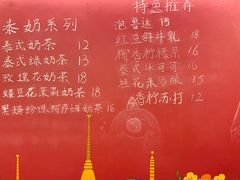 泰奶系列
泰式奶茶 12
泰式绿奶茶 13
玫瑰花奶茶 18
蝶豆花茉莉奶茶 18
黑糖珍珠阿萨姆奶茶 16
特色推荐
泡鲁达 15
红豆鲜牛乳 18
椰香柠檬茶 16
泰式冰可可 16
桂花米酿 16
香柠苏打 12